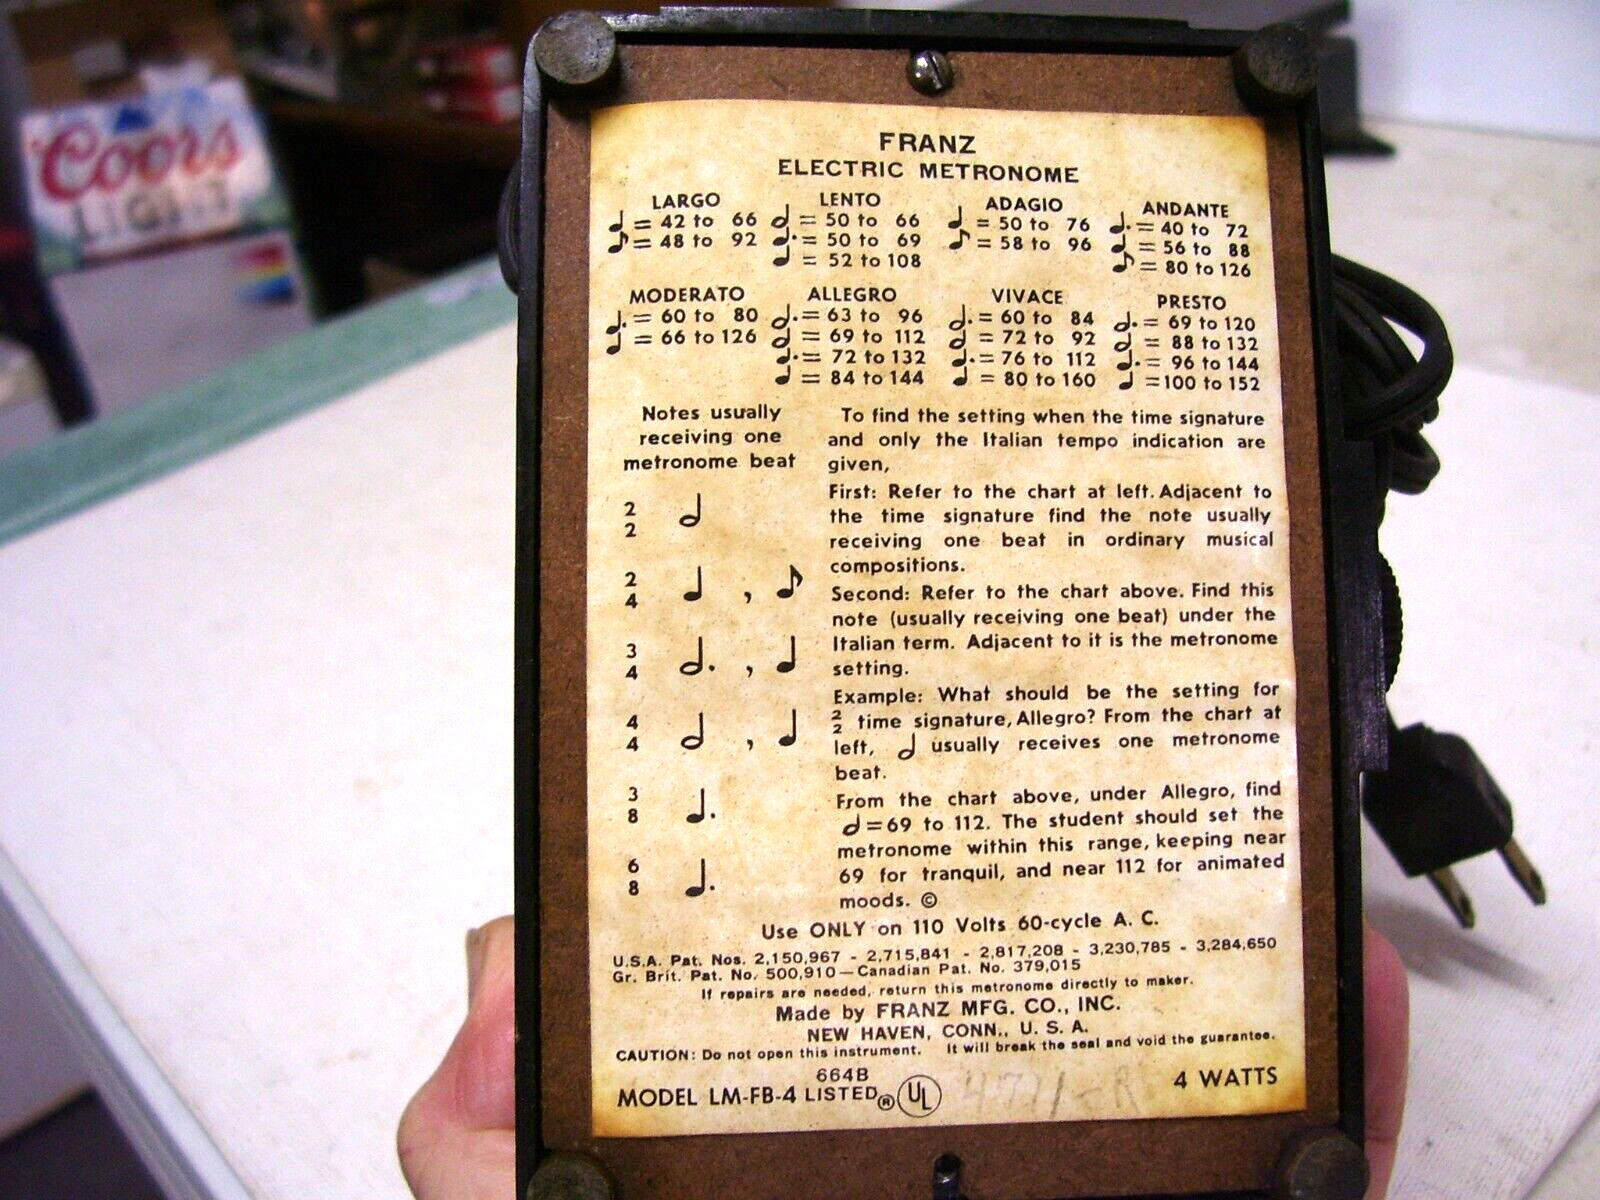 Coors
LIGHT
FRANZ
ELECTRIC METRONOME
LARGO LENTO ADAGIO ANDANTE
♩ = 42 to 66 𝅗𝅥 = 50 to 66 ♩ = 50 to 76 ♩. = 40 to 72
♪ = 48 to 92 ♩. = 50 to 69 ♪ = 58 to 96 ♩ = 56 to 88
♩ = 52 to 108 ♪ = 80 to 126
MODERATO ALLEGRO VIVACE PRESTO
♩. = 60 to 80 𝅗𝅥. = 63 to 96 𝅗𝅥. = 60 to 84 𝅗𝅥. = 69 to 120
♩ = 66 to 126 𝅗𝅥 = 69 to 112 𝅗𝅥 = 72 to 92 𝅗𝅥 = 88 to 132
♩. = 72 to 132 ♩. = 76 to 112 ♩. = 96 to 144
♩ = 84 to 144 ♩ = 80 to 160 ♩ = 100 to 152
Notes usually
receiving one
metronome beat
2
2 𝅗𝅥
2
4 ♩ , ♪
3
4 𝅗𝅥. , ♩
4
4 𝅗𝅥 , ♩
3
8 ♩.
6
8 ♩.
To find the setting when the time signature
and only the Italian tempo indication are
given,
First: Refer to the chart at left. Adjacent to
the time signature find the note usually
receiving one beat in ordinary musical
compositions.
Second: Refer to the chart above. Find this
note (usually receiving one beat) under the
Italian term. Adjacent to it is the metronome
setting.
Example: What should be the setting for
2/2 time signature, Allegro? From the chart at
left, 𝅗𝅥 usually receives one metronome
beat.
From the chart above, under Allegro, find
𝅗𝅥 = 69 to 112. The student should set the
metronome within this range, keeping near
69 for tranquil, and near 112 for animated
moods. ©
Use ONLY on 110 Volts 60-cycle A. C.
U.S.A. Pat. Nos. 2,150,967 - 2,715,841 - 2,817,208 - 3,230,785 - 3,284,650
Gr. Brit. Pat. No. 500,910—Canadian Pat. No. 379,015
If repairs are needed, return this metronome directly to maker.
Made by FRANZ MFG. CO., INC.
NEW HAVEN, CONN., U. S. A.
CAUTION: Do not open this instrument. It will break the seal and void the guarantee.
664B
MODEL LM-FB-4 LISTED ® UL 4 WATTS